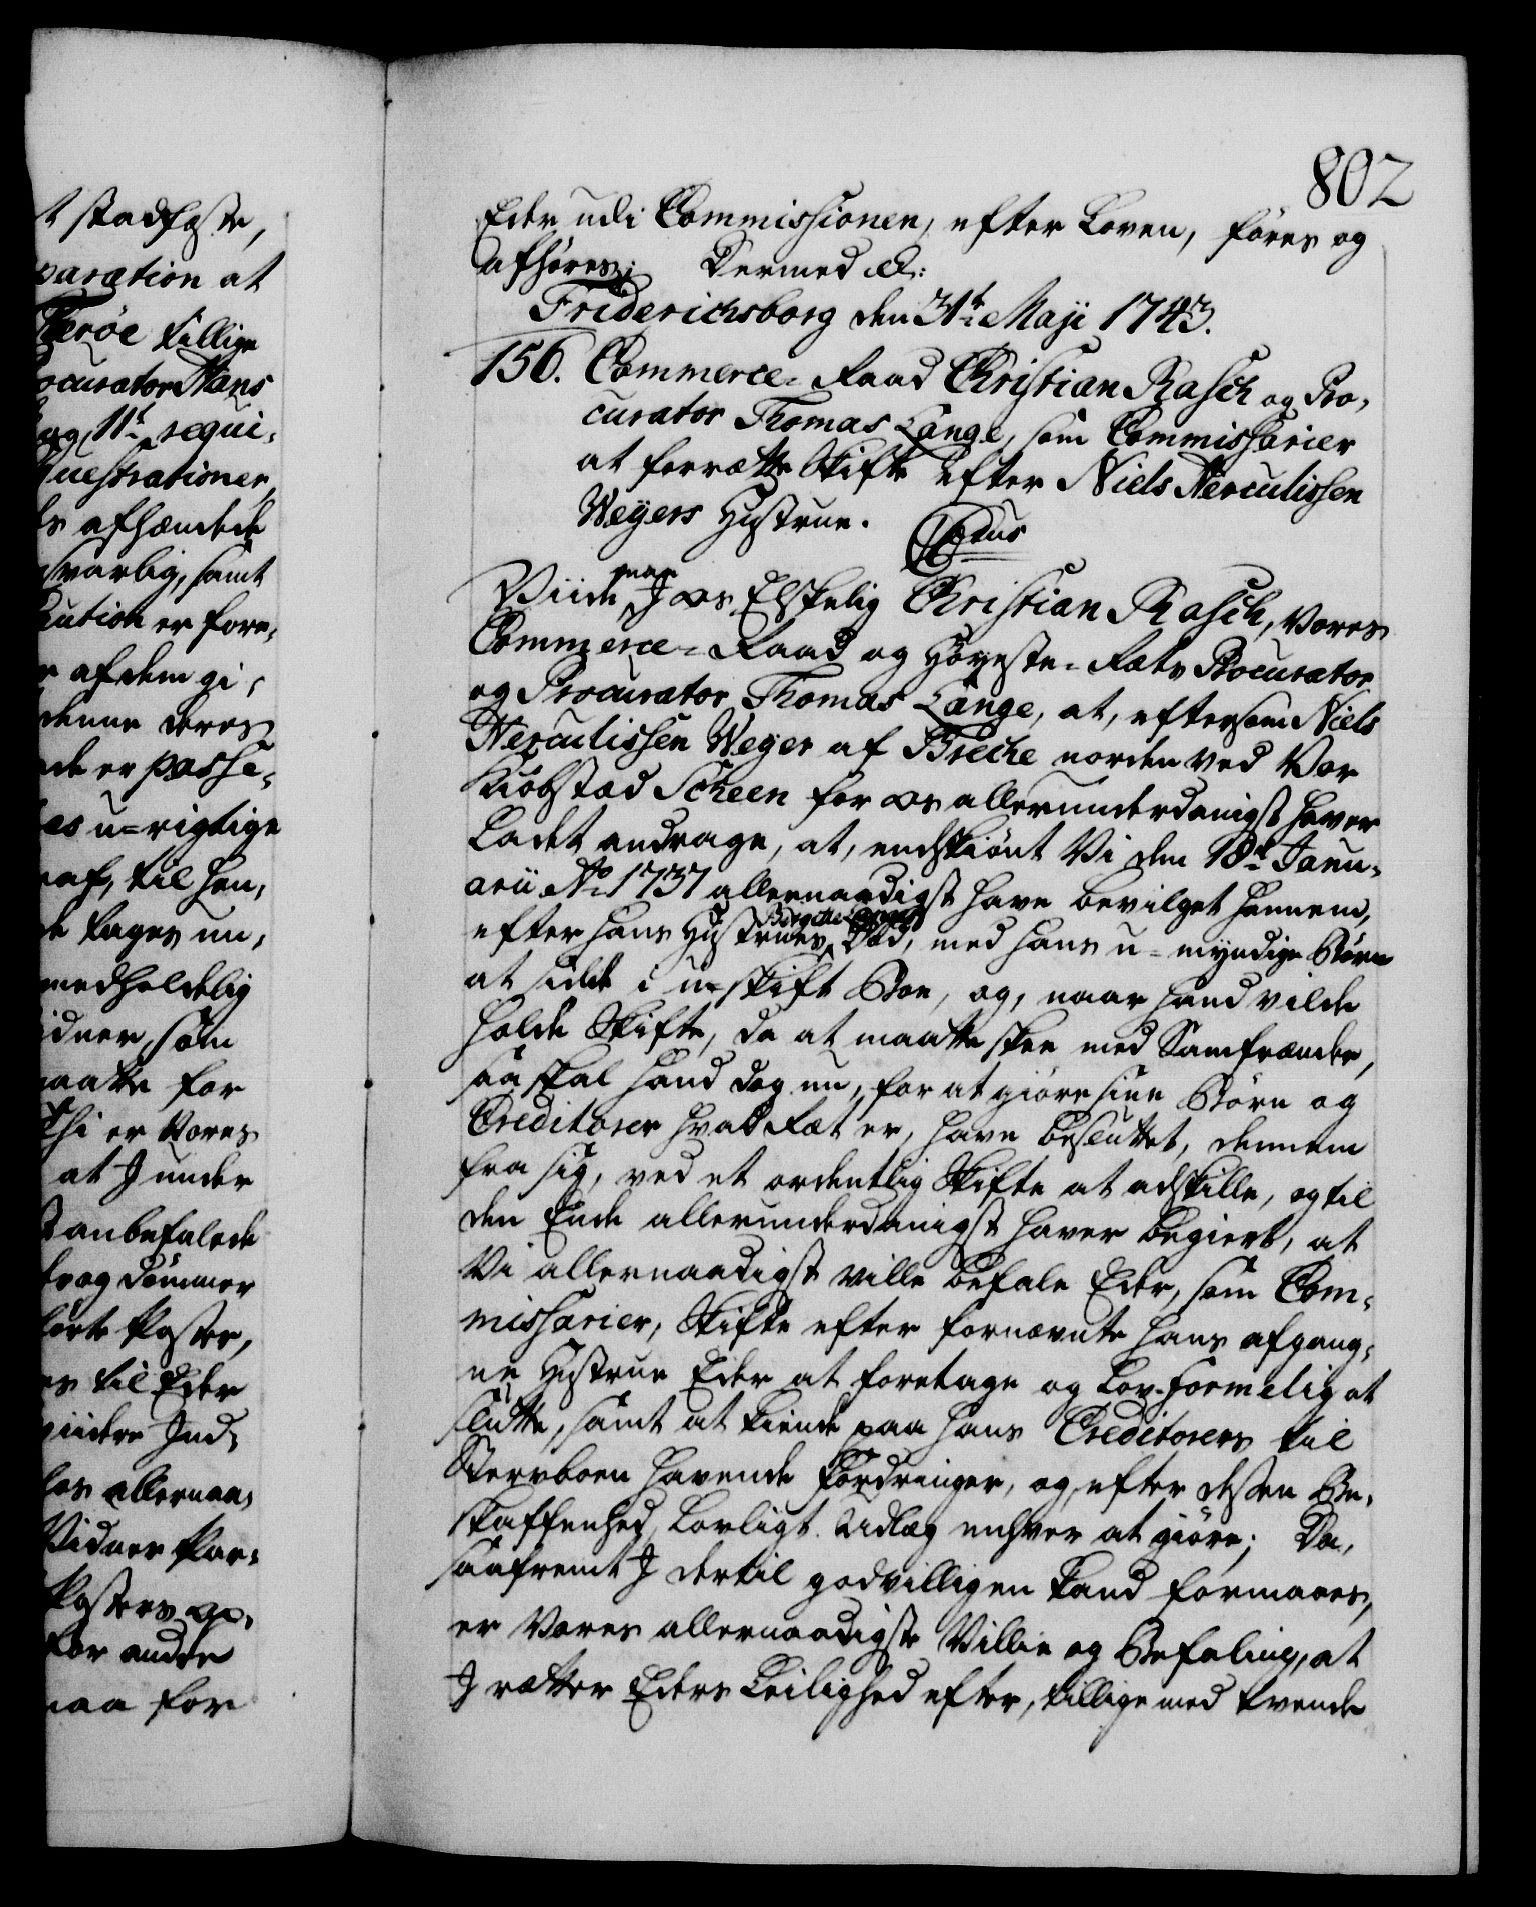 802
t stadfæste,
paration at
Herøe tillige
ocurator Hans
og 11te requi-
questrationer,
s afhændede
svarlig, samt
cution er fore-
r af dem gi-
denne deres
de er passe-
es u-rigtige
af, til hen-
de tages un-
medholdelig
idner, som
maatte for
Thi er Vores
at I under
t anbefalede
og Dommer
førte Poster,
es til Eder
Ind-
os allernaa-
Vidner
Posters
for andre
maa for
Eder udi Commissionen, efter Loven, føres og
afhøres; Dermed &:
Friderichsborg den 31te Maji 1743.
156. Commerce-Raad Christian Rasch og Pro-
curator Thomas Lange, som Commissarier
at forrætte Skifte efter Niels Herculissen
Weyers Hustrue.
Ctus
Viide maae I os Elskelig Christian Rasch, Vores
Commerce-Raad og Høyeste-Rets Procurator
og Procurator Thomas Lange, at, eftersom Niels
Herculissen Weyer af Breche norden ved Vor
Kiøbstad Scheen for os allerunderdanigst haver
Ladet andrage, at, endskiønt Vi den 18de Janu-
arii Ao 1737 allernaadigst have bevilget hannem,
efter hans Hustrues Birgitte Langes Død, med hans u-myndige Børn
at sidde i u-skift Boe, og, naar hand vilde
holde Skifte, da at maatte skee med Samfrænder,
saa skal hand dog nu, for at giøre sine Børn og
Creditorer hvad Ræt er, have besluttet, dennem
fra sig, ved et ordentlig Skifte at adskille, og til
den Ende allerunderdanigst haver begiert, at
Vi allernaadigst ville befale Eder, som Com-
missarier, Skifte efter fornævnte hans afgang-
ne Hustrue Eder at foretage og Lov-formelig at
slutte, samt at kiende paa hans Creditorers til
Stervboen havende Fordringer, og, efter dessen Be-
skaffenhed, Lovligt Udlæg enhver at giøre; Da,
saafremt I dertil godvilligen kand formaaes,
er Vores allernaadigste Villie og Befaling, at
I rætter Eders Leilighed efter, tillige med tvende